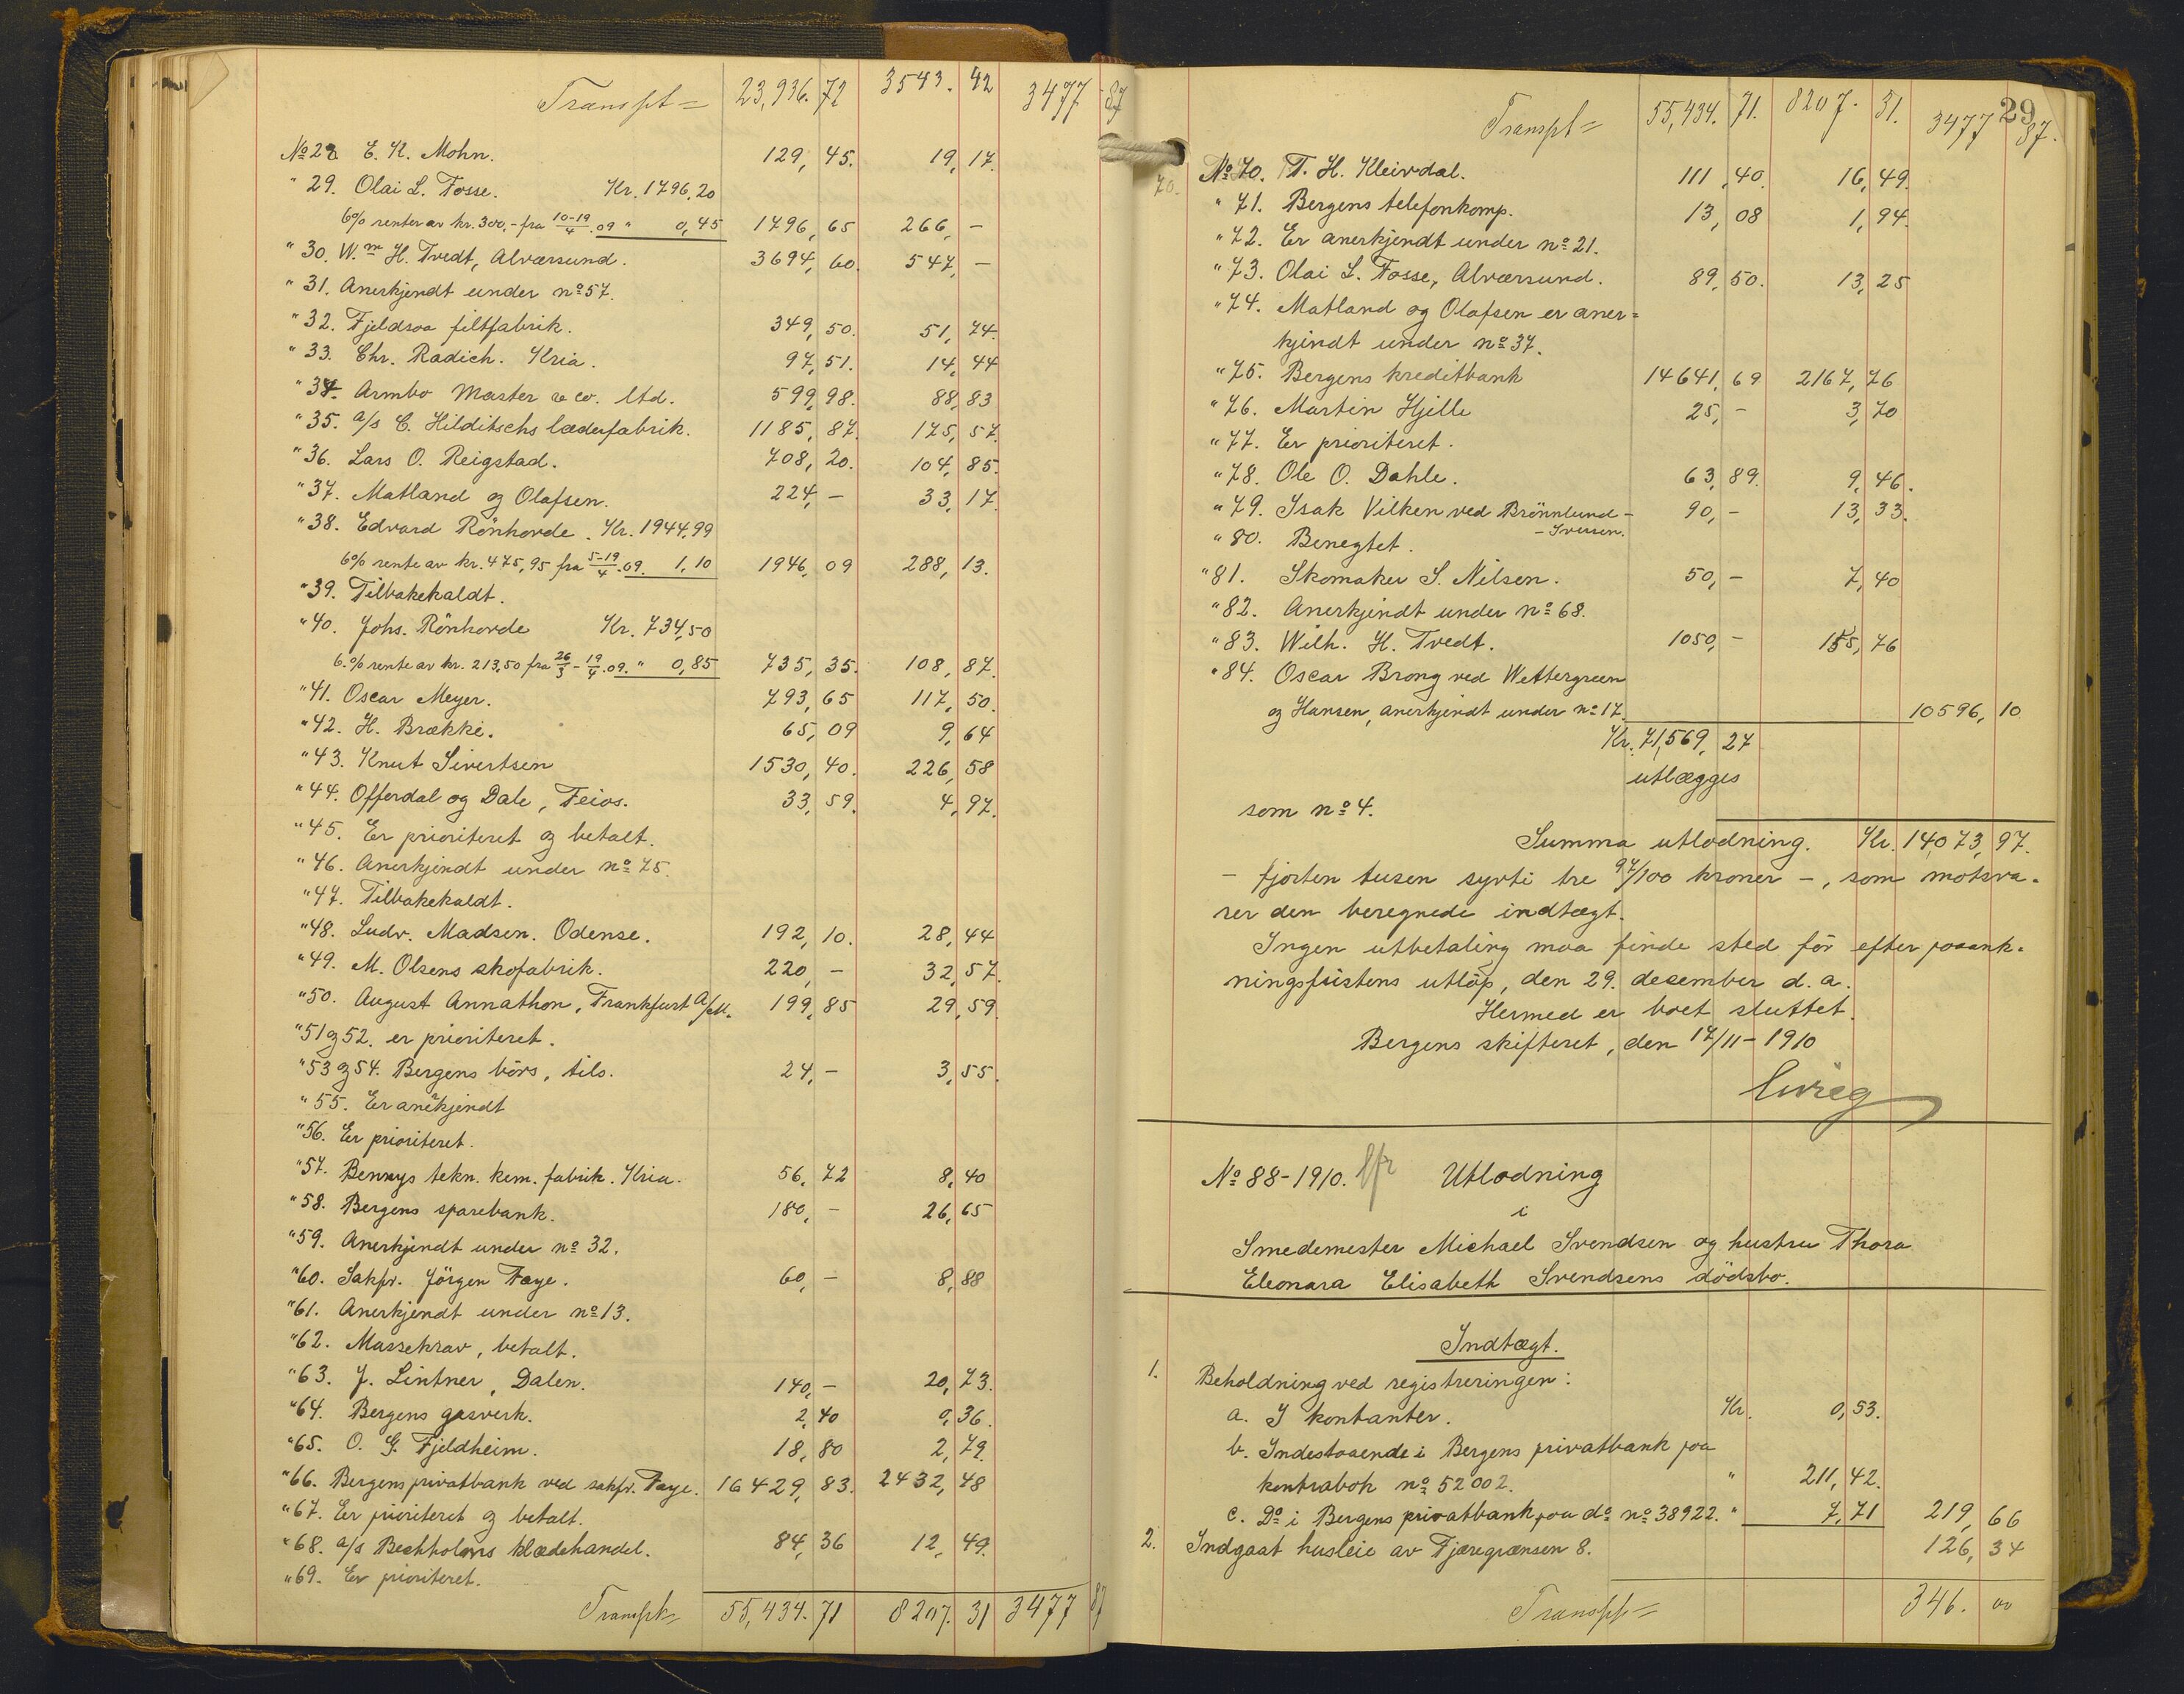 Transpt = 23,936. 72 3543. 42 3477 87
No 28 E. K. Mohn. 129, 45. 19, 17.
" 29. Olai L. Fosse. Kr. 1796,20
6% renter av kr. 300,- fra 10-19/4.09 " 0,45 1796, 65 266, -
" 30. Wm H. Tvedt, Alværsund. 3694, 60. 547, -
" 31. Anerkjendt under no 57.
" 32. Fjeldsaa filtfabrik. 349, 50. 51, 74.
" 33. Chr. Radich. Kria. 97, 51. 14, 44
" 34. Armbo Master & co. ltd. 599, 98. 88, 83
" 35. a/s C. Hilditschs læderfabrik. 1185, 87. 175, 57.
" 36. Lars O. Reigstad. 708, 20. 104, 85.
" 37. Matland og Olafsen. 224, - 33, 17.
" 38. Edvard Rönhovde. Kr. 1944,99
6% rente av kr. 475,95 fra 5-19/4.09. 1,10 1946, 09 288, 13.
" 39. Tilbakekaldt.
" 40. Johs. Rönhovde Kr. 734,50
6.% rente av kr. 213,50 fra 26/3 - 19/4.09. " 0,85 735, 35. 108, 87.
" 41. Oscar Meyer. 793, 65 117, 50.
" 42. H. Brække. 65, 09 9, 64
" 43. Knut Sivertsen 1530, 40. 226, 58
" 44. Offerdal og Dale, Feios. 33, 59. 4, 97.
" 45. Er prioriteret og betalt.
" 46. Anerkjendt under no 75.
" 47. Tilbakekaldt.
" 48. Ludv. Madsen. Odense. 192, 10. 28, 44
" 49. M. Olsens skofabrik. 220, - 32, 57.
" 50. August Annathon, Frankfurt a/M. 199, 85 29, 59.
" 51 og 52. er prioriteret.
" 53 og 54. Bergens börs, tils. 24, - 3, 55.
" 55. Er anerkjendt
" 56. Er prioriteret.
" 57. Bennys tekn. kem. fabrik. Kria. 56, 72 8, 40
" 58. Bergens sparebank. 180, - 26, 65
" 59. Anerkjendt under no 32.
" 60. Sakfr. Jörgen Faye. 60, - 8, 88
" 61. Anerkjendt under no 13.
" 62. Massekrav, betalt.
" 63. J. Lintner, Dalen. 140, - 20, 73.
" 64. Bergens gasverk. 2, 40 0, 36.
" 65. O. G. Fjeldheim. 18, 80 2, 79.
" 66. Bergens privatbank ved sakfr. Faye. 16429, 83. 2432, 48
" 67. Er prioriteret og betalt.
" 68. a/s Bechholms klædehandel. 84, 36 12, 49.
" 69. Er prioriteret.
Transpt = 55,434. 71 8207. 31 3477 87
29
Transpt = 55,434. 71. 8207. 31. 3477 87.
70. No 70. T. H. Kleivdal. 111, 40. 16, 49.
" 71. Bergens telefonkomp. 13, 08 1, 94.
" 72. Er anerkjendt under no 21.
" 73. Olai L. Fosse, Alværsund. 89, 50. 13, 25
" 74. Matland og Olafsen er aner=
kjendt under no 37.
" 75. Bergens kreditbank 14641, 69 2167, 76
" 76. Martin Hjelle 25, - 3, 70
" 77. Er prioriteret.
" 78. Ole O. Dahle. 63, 89. 9, 46.
" 79. Isak Vilken ved Brönnlund - 90, - 13, 33.
- Iversen.
" 80. Benegtet.
" 81. Skomaker S. Nilsen. 50, - 7, 40
" 82. Anerkjendt under no 68.
" 83. Wilh. H. Tvedt. 1050, - 155, 46
" 84. Oscar Brong ved Wettergreen
og Hansen, anerkjendt under no 17. 10596, 10
Kr. 71,569, 27
utlægges
som no 4.
Summa utlodning. Kr. 14,073, 97.
- fjorten tusen sytti tre 97/100 kroner -, som motsva-
rer den beregnede indtægt.
Ingen utbetaling maa finde sted för efter paaank-
ningsfristens utlöp, den 29. desember d. a.
Hermed er boet sluttet.
Bergens skifteret, den 17/11 - 1910
No 88 - 1910. Utlodning
i
Smedemester Michael Svendsen og hustru Thora
Eleonara Elisabeth Svendsens dödsbo.
Indtægt.
1. Beholdning ved registreringen:
a. I kontanter. Kr. 0, 53.
b. Indestaaende i Bergens privatbank paa
kontrabok no 52002. " 211, 42.
c. Do i Bergens privatbank paa do no 38922. " 7, 71 219, 66
2. Indgaat husleie av Fjæregrænsen 8. 126, 34
Transpt = 346. 00